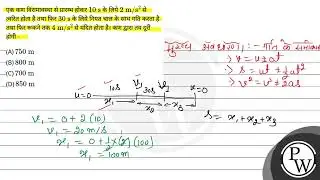 एक कण विरामावस्था से प्रारम्भ होकर 10 s के लिये 2 m/s² से
त्वरित होता है तथा फिर 30 s के लिये नियत चाल के साथ गति करता है
तथा फिर रूकने तक 4 m/s² से मंदित होता है। कण द्वारा तय दूरी
होगी -
(A) 750 m
(B) 800 m
(C) 700 m
(D) 850 m
गति के समीकरण
> v = u ± at
> s = ut + ½at²
> v² = u² ± 2as
u=0 10s v₁ 30s v₁ v=0
x₁ x₂ x₃
s = x₁ + x₂ + x₃
v₁ = 0 + 2 (10)
v₁ = 20 m/s
x₁ = 0 + ½ × 2 (100)
x₁ = 100m
PW